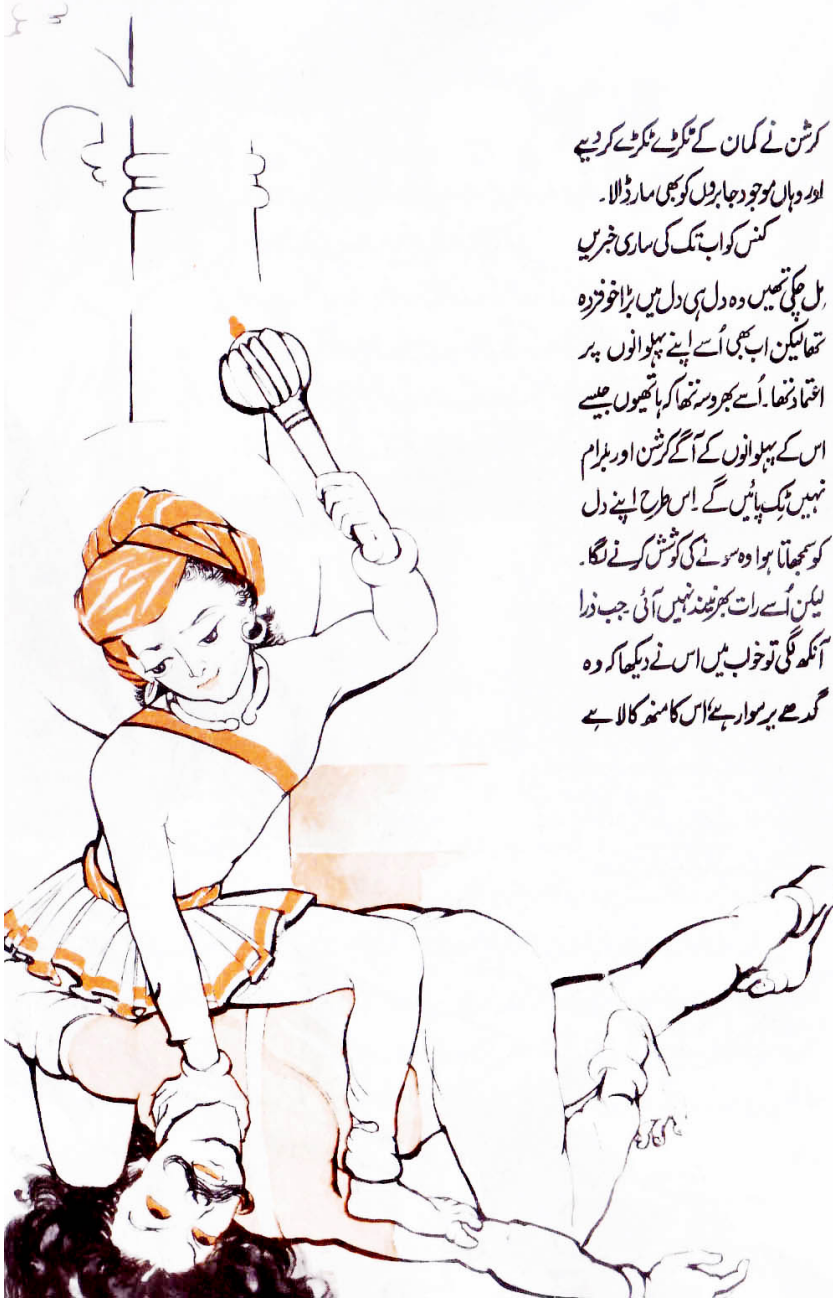 کرشن نے کمان کے ٹکڑے ٹکڑے کر دیے
اور وہاں موجود جابروں کو بھی مار ڈالا۔
کنس کو اب تک کی ساری خبریں
مِل چکی تھیں وہ دل ہی دل میں بڑا خوفزدہ
تھا لیکن اب بھی اُسے اپنے پہلوانوں پر
اعتماد تھا۔ اُسے بھروسہ تھا کہ ہاتھیوں جیسے
اس کے پہلوانوں کے آگے کرشن اور بلرام
نہیں ٹِک پائیں گے۔ اِس طرح اپنے دل
کو سمجھاتا ہوا وہ سونے کی کوشش کرنے لگا۔
لیکن اُسے رات بھر نیند نہیں آئی۔ جب ذرا
آنکھ لگی تو خوب میں اس نے دیکھا کہ وہ
گدھے پر سوار ہے، اس کا منھ کالا ہے